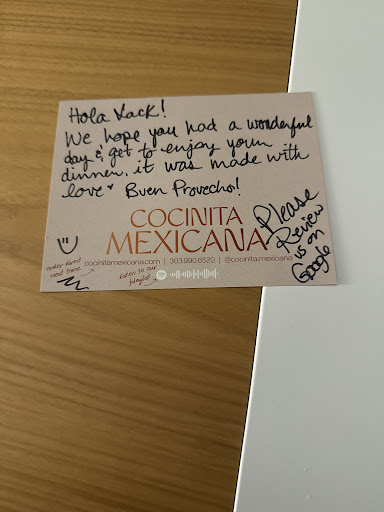 Hola Xack!
We hope you had a wonderful
day & get to enjoy your
dinner, it was made with
love ♥ Buen Provecho!
COCINITA
MEXICANA
Please
Review
us on
Google
order direct
next time
cocinitamexicana.com | 303.990.6520 | @cocinita.mexicana
listen to our
playlist